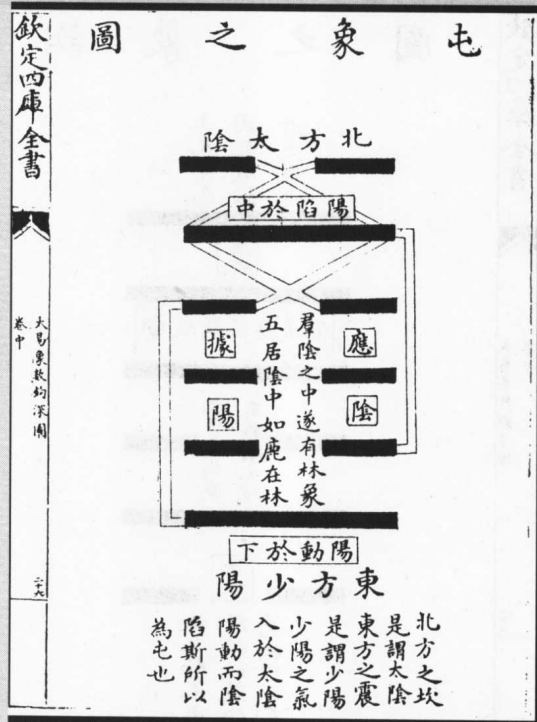 屯象之圖
北方太陰
陽陷於中
應陰
據陽
羣陰之中遂有林象
五居陰中如鹿在林
陽動於下
東方少陽
北方之坎
是謂太陰
東方之震
是謂少陽
少陽之氣
入於太陰
陽動而陰
陷斯所以
為屯也
欽定四庫全書
大易象數鈎深圖
卷中
二十六